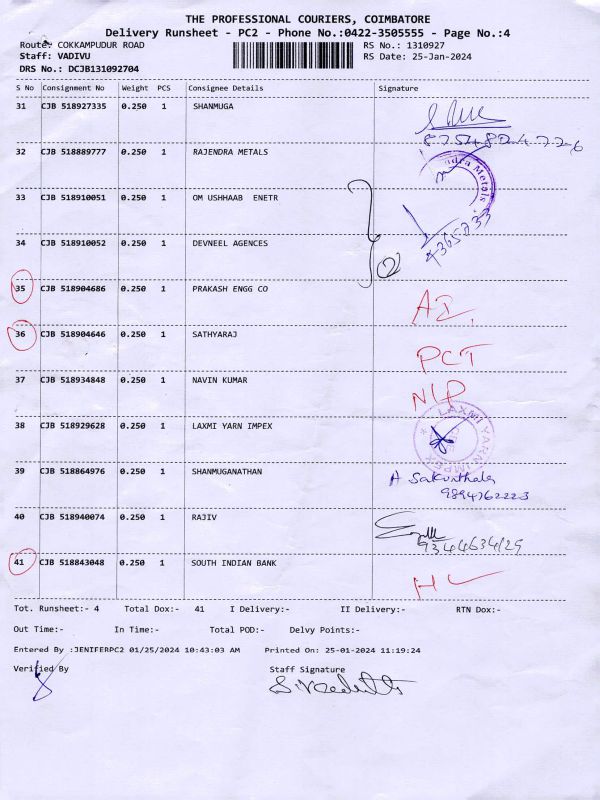 THE PROFESSIONAL COURIERS, COIMBATORE
Delivery Runsheet - PC2 - Phone No.:0422-3505555 - Page No.:4
Route: COKKAMPUDUR ROAD RS No.: 1310927
Staff: VADIVU RS Date: 25-Jan-2024
DRS No.: DCJB131092704
S No Consignment No Weight PCS Consignee Details Signature
31 CJB 518927335 0.250 1 SHANMUGA
32 CJB 518889777 0.250 1 RAJENDRA METALS
33 CJB 518910051 0.250 1 OM USHHAAB ENETR
34 CJB 518910052 0.250 1 DEVNEEL AGENCES
35 CJB 518904686 0.250 1 PRAKASH ENGG CO
36 CJB 518904646 0.250 1 SATHYARAJ PCT
37 CJB 518934848 0.250 1 NAVIN KUMAR
38 CJB 518929628 0.250 1 LAXMI YARN IMPEX LAXMI YARN IMPEX
39 CJB 518864976 0.250 1 SHANMUGANATHAN
9894762223
40 CJB 518940074 0.250 1 RAJIV
41 CJB 518843048 0.250 1 SOUTH INDIAN BANK
Tot. Runsheet:- 4 Total Dox:- 41 I Delivery:- II Delivery:- RTN Dox:-
Out Time:- In Time:- Total POD:- Delvy Points:-
Entered By :JENIFERPC2 01/25/2024 10:43:03 AM Printed On: 25-01-2024 11:19:24
Verified By Staff Signature